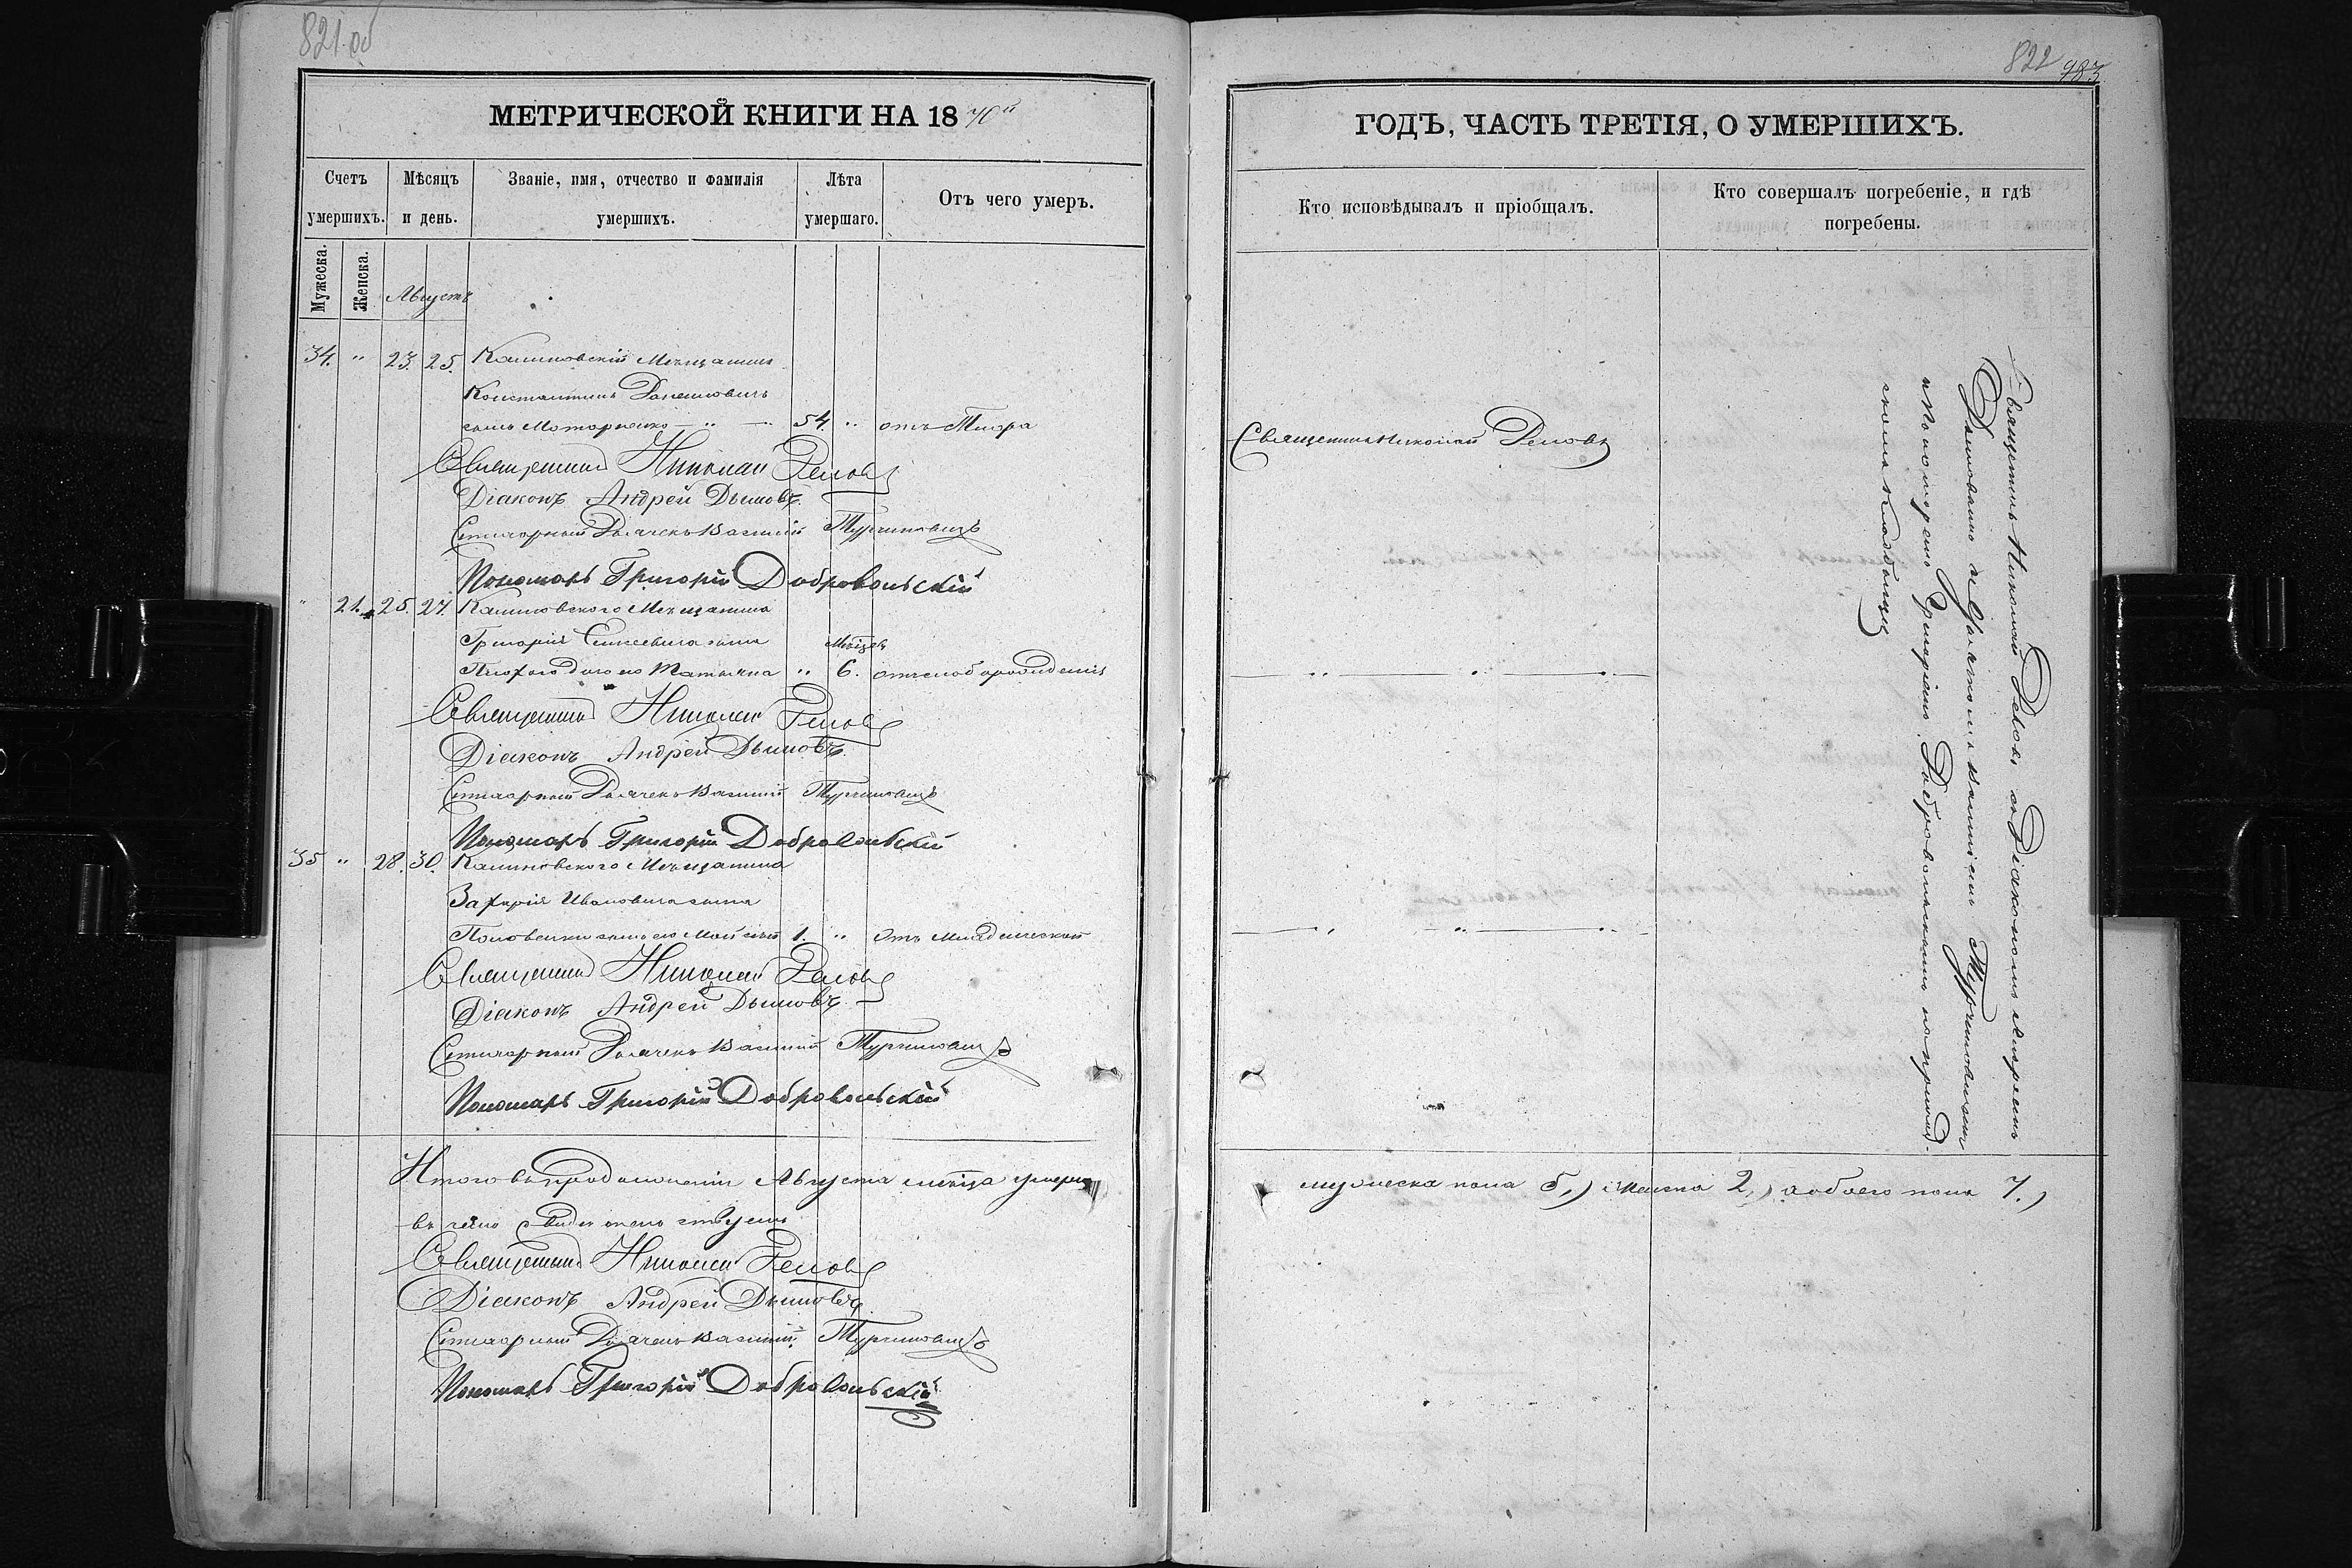 821 об
МЕТРИЧЕСКОЙ КНИГИ НА 1870й
Счетъ умершихъ.
Мѣсяцъ и день.
Званіе, имя, отчество и фамилія умершихъ.
Лѣта умершаго.
Отъ чего умеръ.
Мужеска.
Женска.
Августъ
34. " 23. 25. Калиновскій Мѣщанинъ
Константинъ
сынъ Моторненко — " — 54. " отъ
Священникъ Николай
Діаконъ Андрей Дымовъ.
Стихарный Василій
Пономарь Григорій Добровольскій
" 21. 25. 27. Калиновского Мѣщанина
Григорія Елисеевича сына
его Татьяна " Мѣсяцевъ 6.
Священникъ Николай
Діаконъ Андрей Дымовъ.
Стихарный Василій
Пономарь Григорій Добровольскій
35 " 28. 30. Калиновского Мѣщанина
Захарія Ивановича сына
Половенки сынъ его Мойсей 1. " Отъ младенческой
Священникъ Николай
Діаконъ Андрей Дымовъ.
Стихарный Василій
Пономарь Григорій Добровольскій
Итого въ продолженіи Августа мѣсяца умерло
въ чемъ и свидетельствуемъ
Священникъ Николай
Діаконъ Андрей Дымовъ.
Стихарный Василій
Пономарь Григорій Добровольскій
822 983
ГОДЪ, ЧАСТЬ ТРЕТІЯ, О УМЕРШИХЪ.
Кто исповѣдывалъ и пріобщалъ.
Кто совершалъ погребеніе, и гдѣ погребены.
Священникъ Николай
Священникъ Николай съ Діакономъ Андреемъ
Дымовымъ Василіемъ
и Пономаремъ Григоріемъ Добровольскимъ на приход-
скомъ кладбищѣ
мужеска пола 5,) женска 2,) а обоего пола 7.)